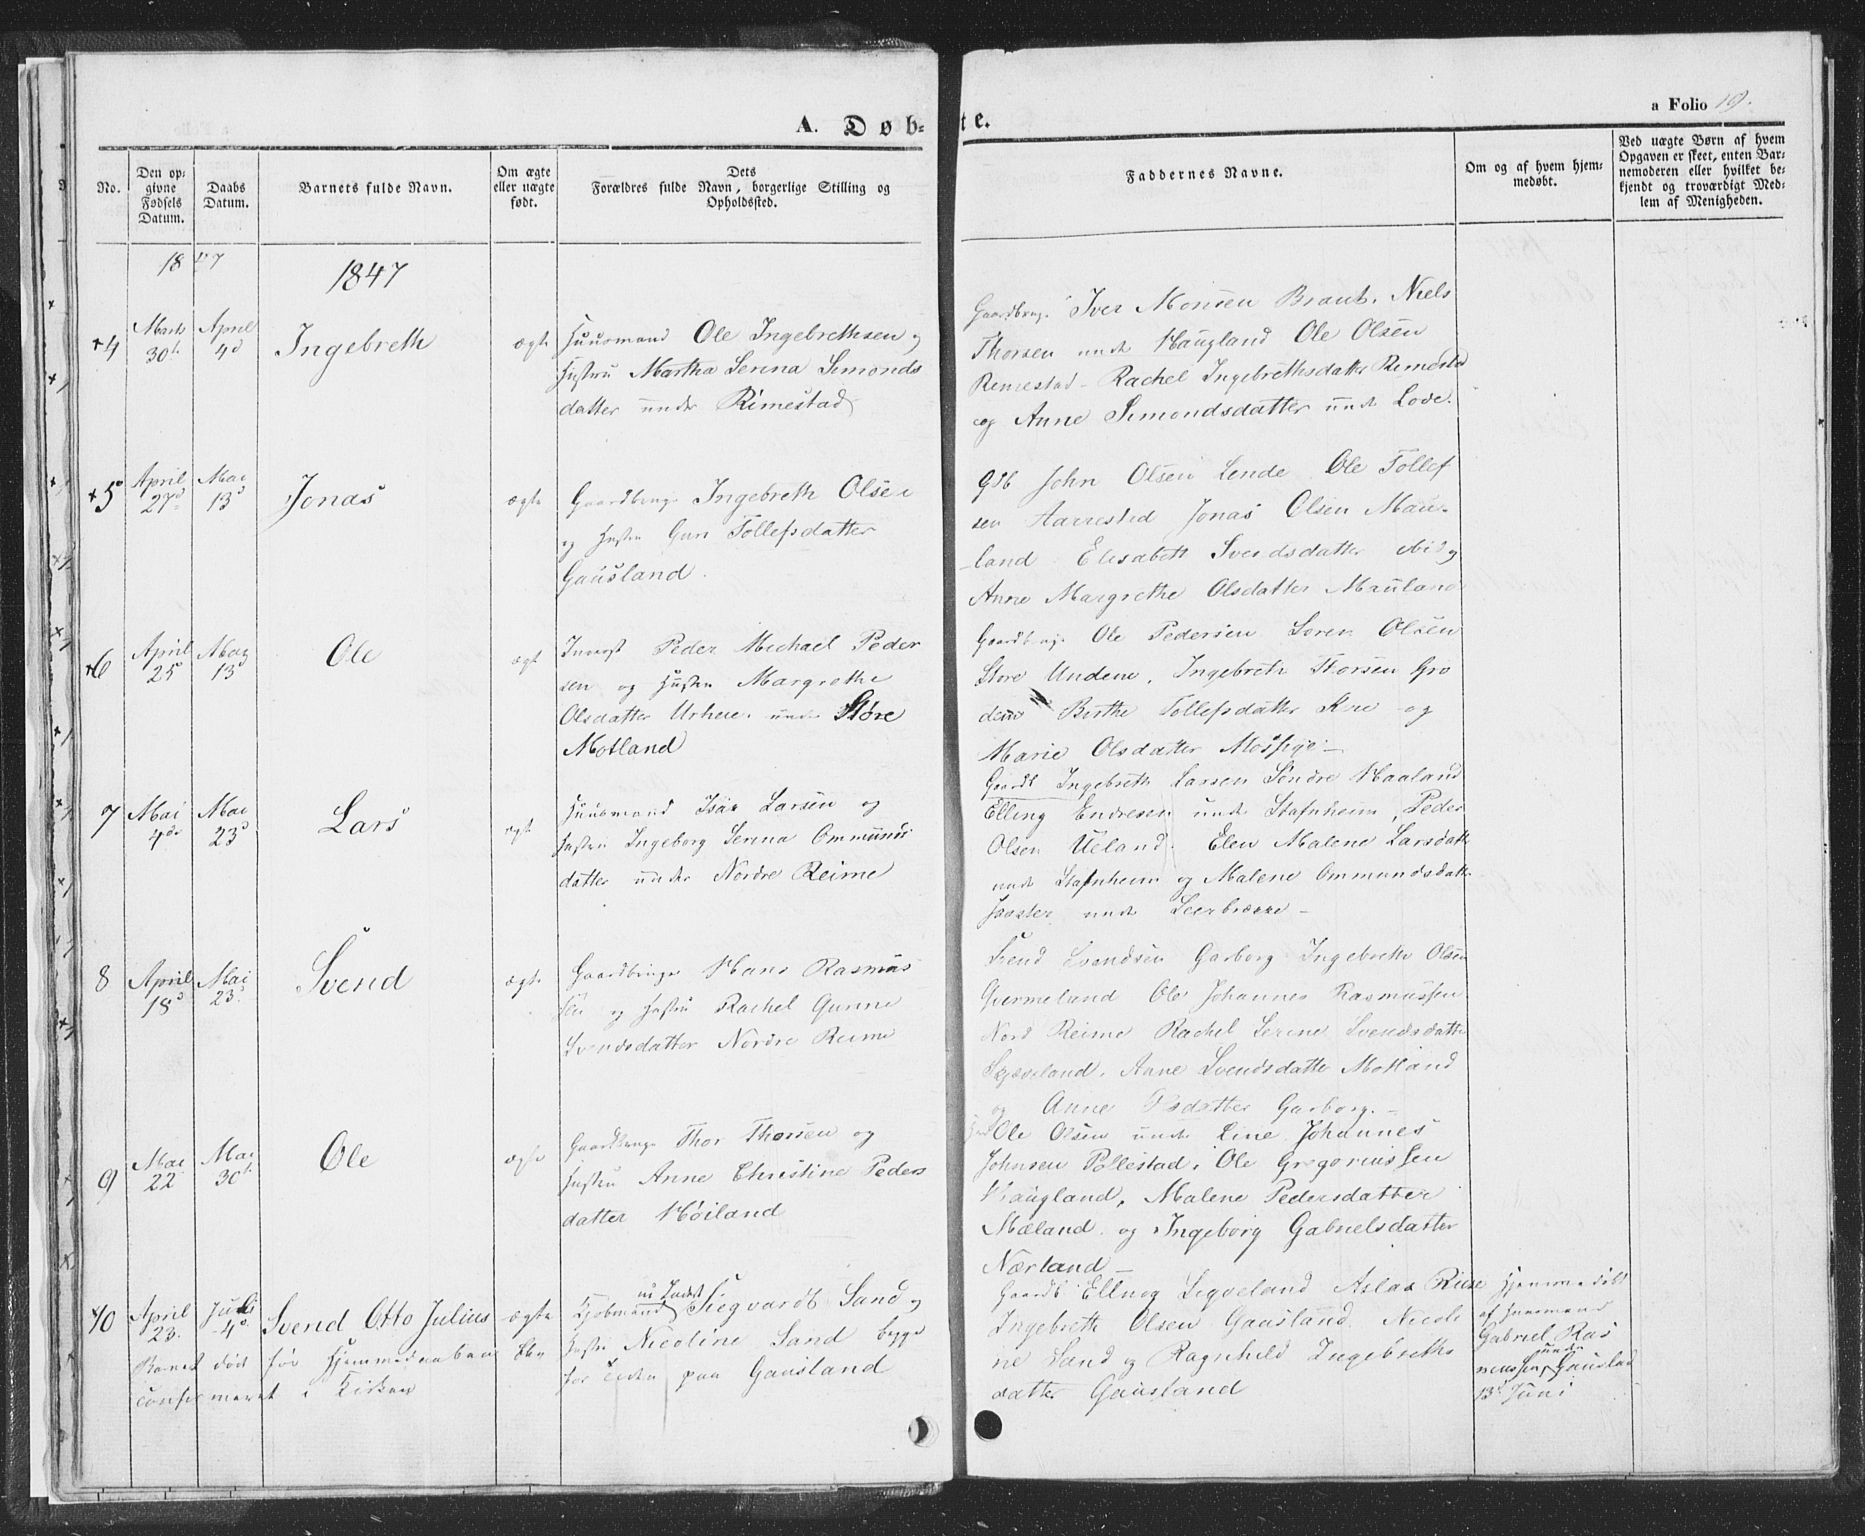 A. Døb-te.
a Folio 19.
No.
Den op-
givne
Fødsels
Datum.
Daabs
Datum.
Barnets fulde Navn.
Om ægte
eller uægte
født.
Dets
Forældres fulde Navn, borgerlige Stilling og
Opholdssted.
Faddernes Navne.
Om og af hvem hjem-
medøbt.
Ved uægte Børn af hvem
Opgaven er skeet, enten Bar-
nemoderen eller hvilket be-
kjendt og troværdigt Med-
lem af Menigheden.
1847
1847
4
Marts
30t
April
4d
Ingebreth
ægte
Huusmand Ole Ingebrethsen og
Hustru Martha Serina Simonds
datter under Rimestad
Gaardbrug. Iver Monsen Braut. Niels
Thorsen unde Haugland Ole Olsen
Remestad - Rachel Ingebrethsdatter Remestad
og Anne Simondsdatter unde Lode.
5
April
27d
Mai
13d
Jonas
ægte
Gaardbrug. Ingebreth Olsen
og Hustru Guri Tollefsdatter
Gausland.
Gdb John Olsen Lende Ole Tollef
sen Aarrestad Jonas Olsen Mau-
land Elisabeth Svendsdatter og
Anne Margrethe Olsdatter Mauland
6
April
25
Mai
13
Ole
ægt
Inderst Peder Michael Peder
sen og Hustru Margrethe
Olsdatter under Store
Motland
Gaardbrug. Ole Pedersen Soren Olsen
Store Undem, Ingebreth Thorsen Gro
dem Birthe Tollefsdatter og
Marie Olsdatter Mossige -
7
Mai
4de
Mai
23d
Lars
ægt
Huusmand Isak Larsen og
Hustru Ingeborg Serina Ommunds
datter under Nordre Reime
Gaardb Ingebreth Larsen Søndre Haaland
Elling Endresen unde Stafnheim, Peder
Olsen Ueland. Elen Malene Larsdatt
unde Stafnheim og Malene Ommundsdatt
unde Leerbrække -
8
April
18d
Mai
23d
Svend
ægte
Gaardbruger Hans Rasmus
sen og Hustru Rachel Gunne
Svendsdatter Nordre Reime
Svend Svendsen Garborg Ingebreth Olsen
Qvermeland Ole Johannes Rasmussen
Nord Reime Rachel Serine Svendsdatter
Skjæveland, Anne Svendsdatte Motland
og Anne Olsdatter Garborg. -
9
Mai
22
Mai
30t
Ole
ægte
Gaardbruge Thor Thorsen og
Hustru Anne Christine Peders
datter Høiland
Ole Olsen unde Line Johannes
Johnsen Pollestad, Ole Gregoriussen
Haugland, Malene Pedersdatter
Mæland og Ingeborg Gabrielsdatter
Nærland -
10
April
23.
Juli
4d
Svend Otto Julius
ægte
Kjøbmand Siegvardt Sand og
Hustru Nicoline Sand begge
for Tiden paa Gausland
Barnet død før Hjemmedaaben
confirmeret i Kirken
Gaardb Elling Sigveland Aslak Riise
Ingebreth Olsen Gausland Nicoli
ne Sand og Ragnhild Ingebreths
datter Gausland
Hjemmedøbt
af Huusmand
Gabriel Ras
mussen unde Gausland
13d Juni